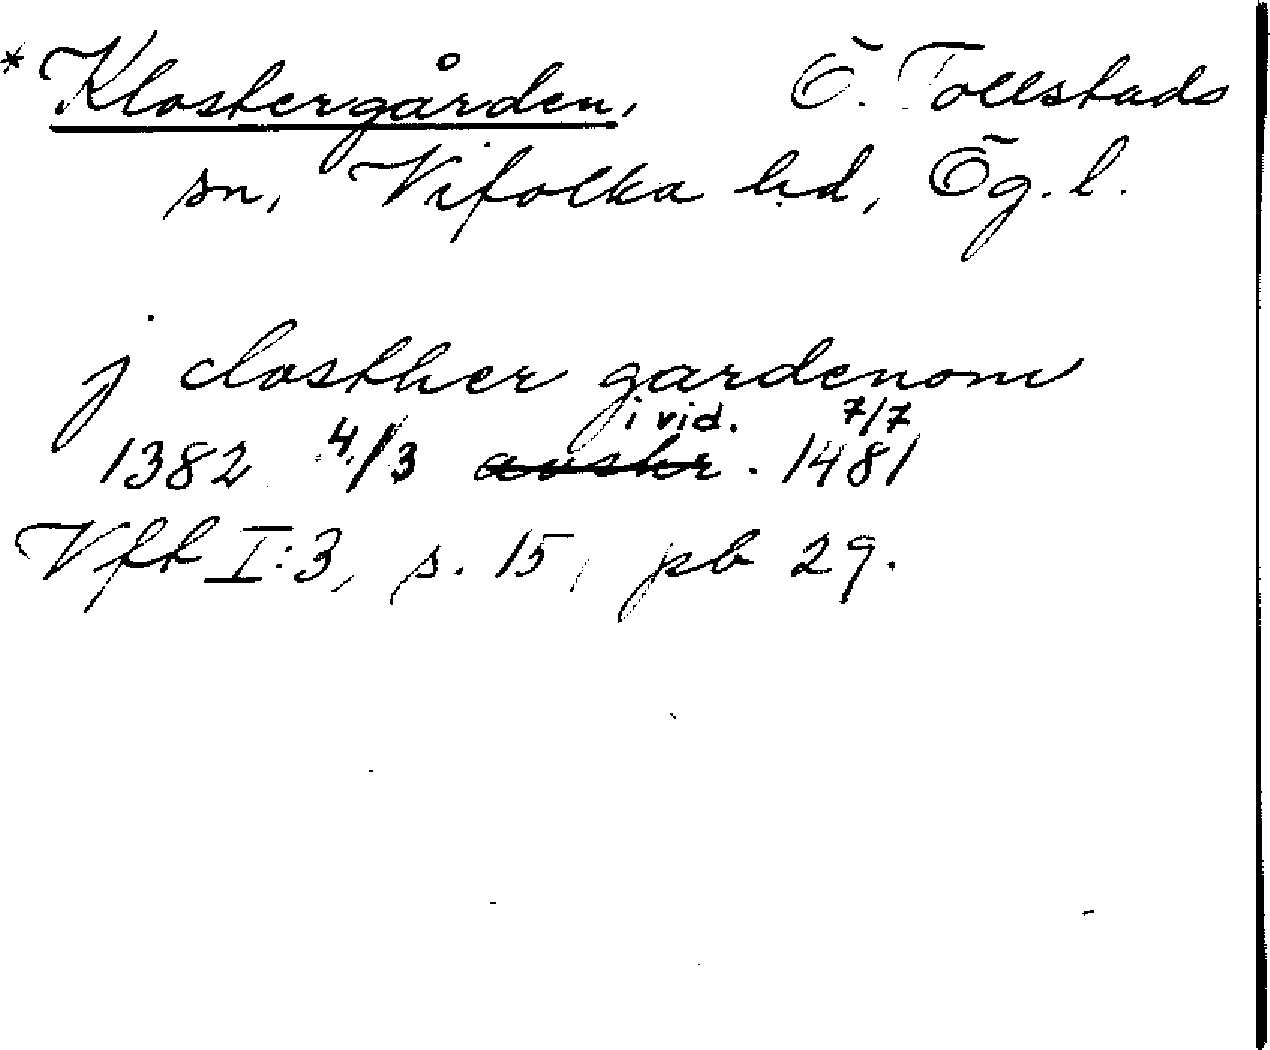 * Klostergården, Ö. Tollstads
sn, Vifolka hd, Ög. l.
j closther gardenom
i vid. 7/7
1382 4/3 avskr. 1481
Vfk I:3, s. 15, pb 29.